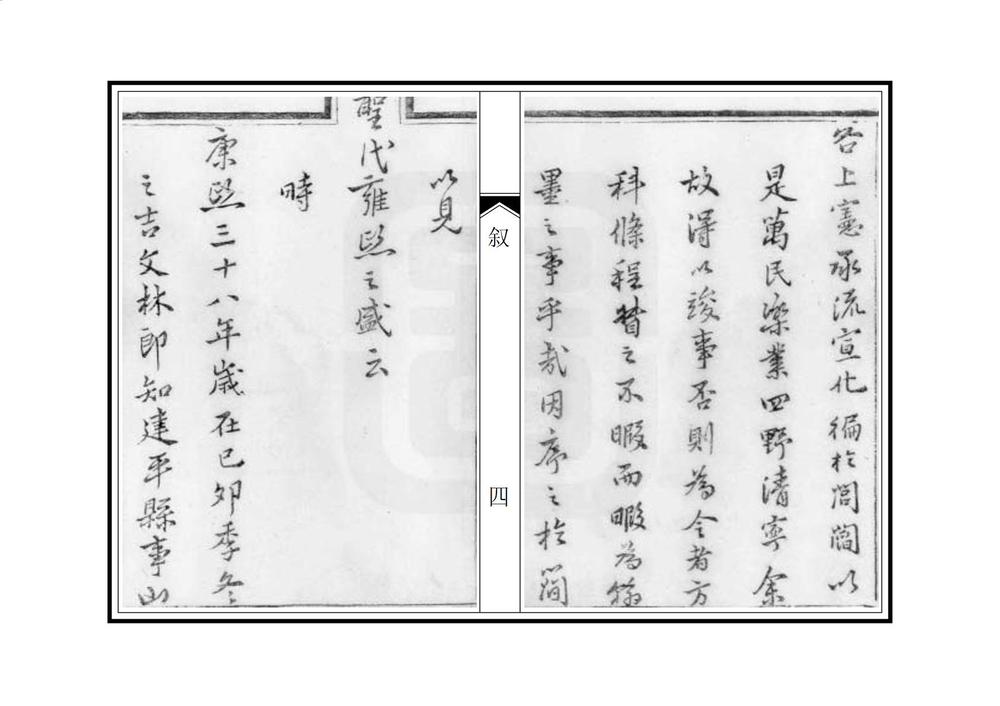 各上憲承流宣化徧於閭閻以
是萬民樂業四野清寧余
故得以竣事否則為令者方
科條程督之不暇而暇為翰
墨之事乎哉因序之於簡
叙
四
以見
聖代雍熙之盛云
時
康熙三十八年歲在已夘季冬
之吉文林郎知建平縣事山